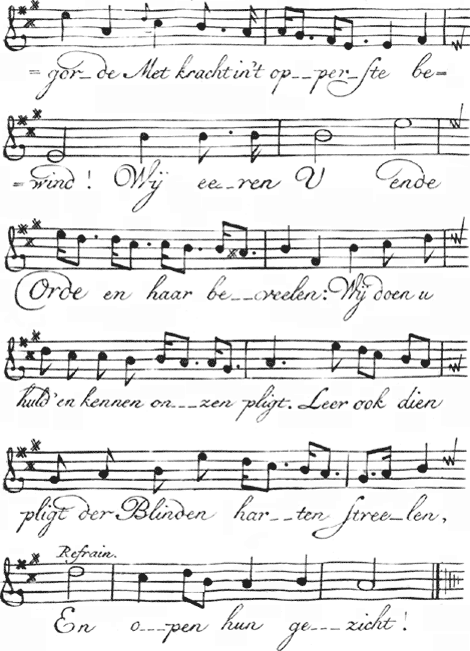 = gor_de Met kracht in't op_ _per_ste be=
= wind! Wij ee_ _ren U ende
Orde en haar be_ _veelen: Wij doen u
huld' en kennen on_ _ _zen pligt. Leer ook dien
pligt der Blinden har_ _ten stree_len,
Refrain.
En o_ _ _pen hun ge_ _ _zicht!